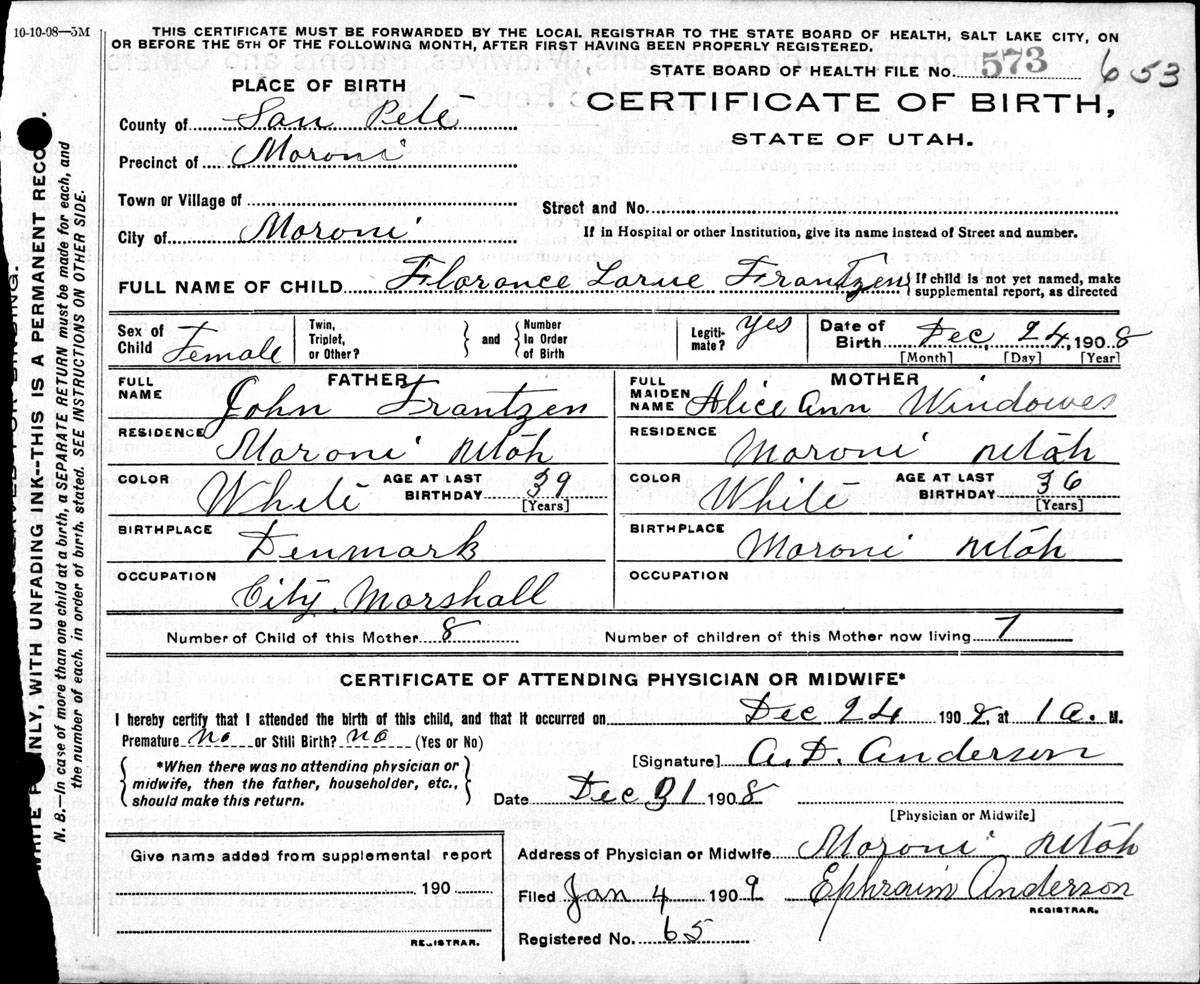 10-10-08—5M
THIS CERTIFICATE MUST BE FORWARDED BY THE LOCAL REGISTRAR TO THE STATE BOARD OF HEALTH, SALT LAKE CITY, ON
OR BEFORE THE 5TH OF THE FOLLOWING MONTH, AFTER FIRST HAVING BEEN PROPERLY REGISTERED.
STATE BOARD OF HEALTH FILE NO. 573 653
PLACE OF BIRTH
CERTIFICATE OF BIRTH,
STATE OF UTAH.
County of San Pete
Precinct of Moroni
Town or Village of
Street and No.
City of Moroni
If in Hospital or other Institution, give its name instead of Street and number.
FULL NAME OF CHILD Florance Larue Frantzen { If child is not yet named, make
supplemental report, as directed
Sex of Child Female
Twin, Triplet, or Other? } and { Number In Order of Birth
Legitimate? yes
Date of Birth Dec, 24, 1908
[Month] [Day] [Year]
FATHER
FULL NAME John Frantzen
RESIDENCE Moroni Utah
COLOR White AGE AT LAST BIRTHDAY 39 [Years]
BIRTHPLACE Denmark
OCCUPATION City Marshall
MOTHER
FULL MAIDEN NAME Alice Ann Windowes
RESIDENCE Moroni Utah
COLOR White AGE AT LAST BIRTHDAY 36 [Years]
BIRTHPLACE Moroni Utah
OCCUPATION
Number of Child of this Mother 8 Number of children of this Mother now living 7
CERTIFICATE OF ATTENDING PHYSICIAN OR MIDWIFE*
I hereby certify that I attended the birth of this child, and that it occurred on Dec 24 1908, at 1 a. M.
Premature no or Still Birth? no (Yes or No)
{ *When there was no attending physician or
midwife, then the father, householder, etc.,
should make this return. }
[Signature] A. D. Anderson
Date Dec 31 1908
[Physician or Midwife]
Give name added from supplemental report
190
REGISTRAR.
Address of Physician or Midwife Moroni Utah
Filed Jan 4 1909 Ephraim Anderson
REGISTRAR.
Registered No. 65
WRITE PLAINLY, WITH UNFADING INK--THIS IS A PERMANENT RECORD.
N. B.—In case of more than one child at a birth, a SEPARATE RETURN must be made for each, and
the number of each, in order of birth, stated. SEE INSTRUCTIONS ON OTHER SIDE.